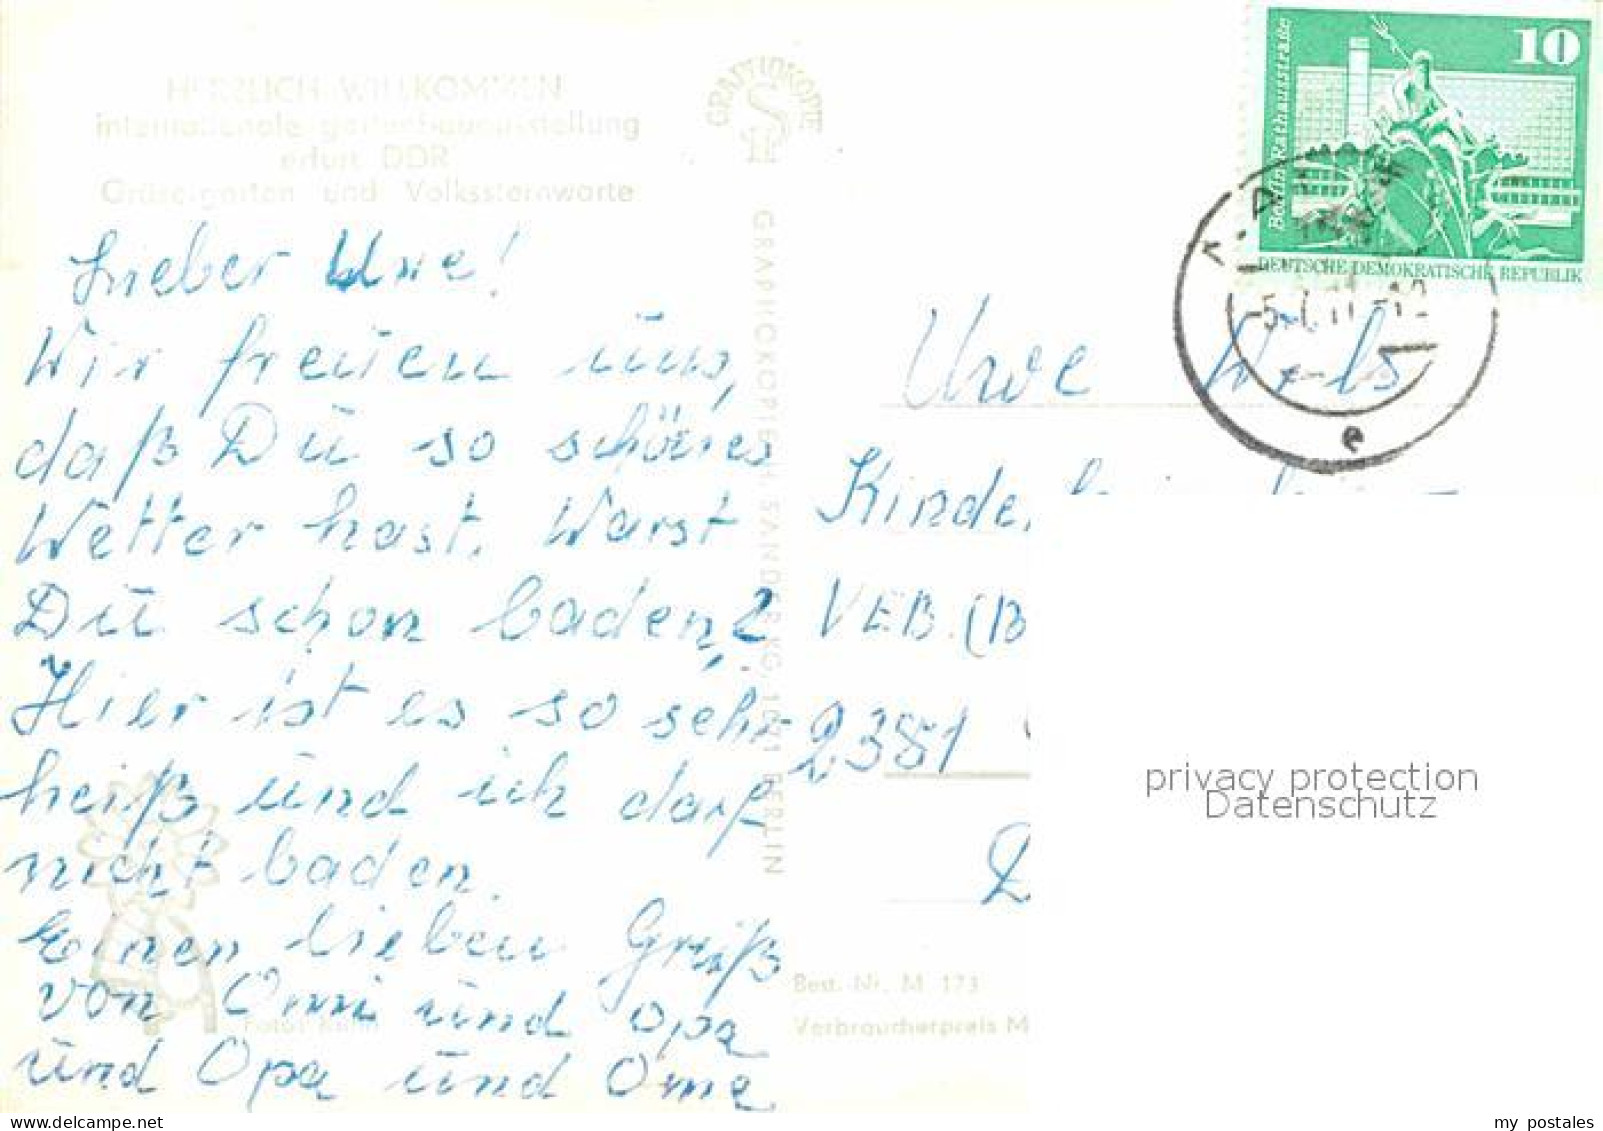 HERZLICH WILLKOMMEN
internationale gartenbauausstellung
erfurt DDR
Grüne garten und Volkssternwarte
Lieber Uwe!
Wir freuen uns,
daß Du so schönes
Wetter hast. Warst
Du schon baden?
Hier ist es so sehr
heiß und ich darf
nicht baden.
Einen lieben Gruß
von Omi und Opa
und Opa und Oma
GRAPHOKOPIE
GRAPHOKOPIE H. SANDER KG, 1071 BERLIN
10
Berlin, Rathausstraße
DEUTSCHE DEMOKRATISCHE REPUBLIK
e
Uwe
Kinde
VEB. (B
2381
Best. Nr. M 173
Verbraucherpreis M
privacy protection
Datenschutz
my postales